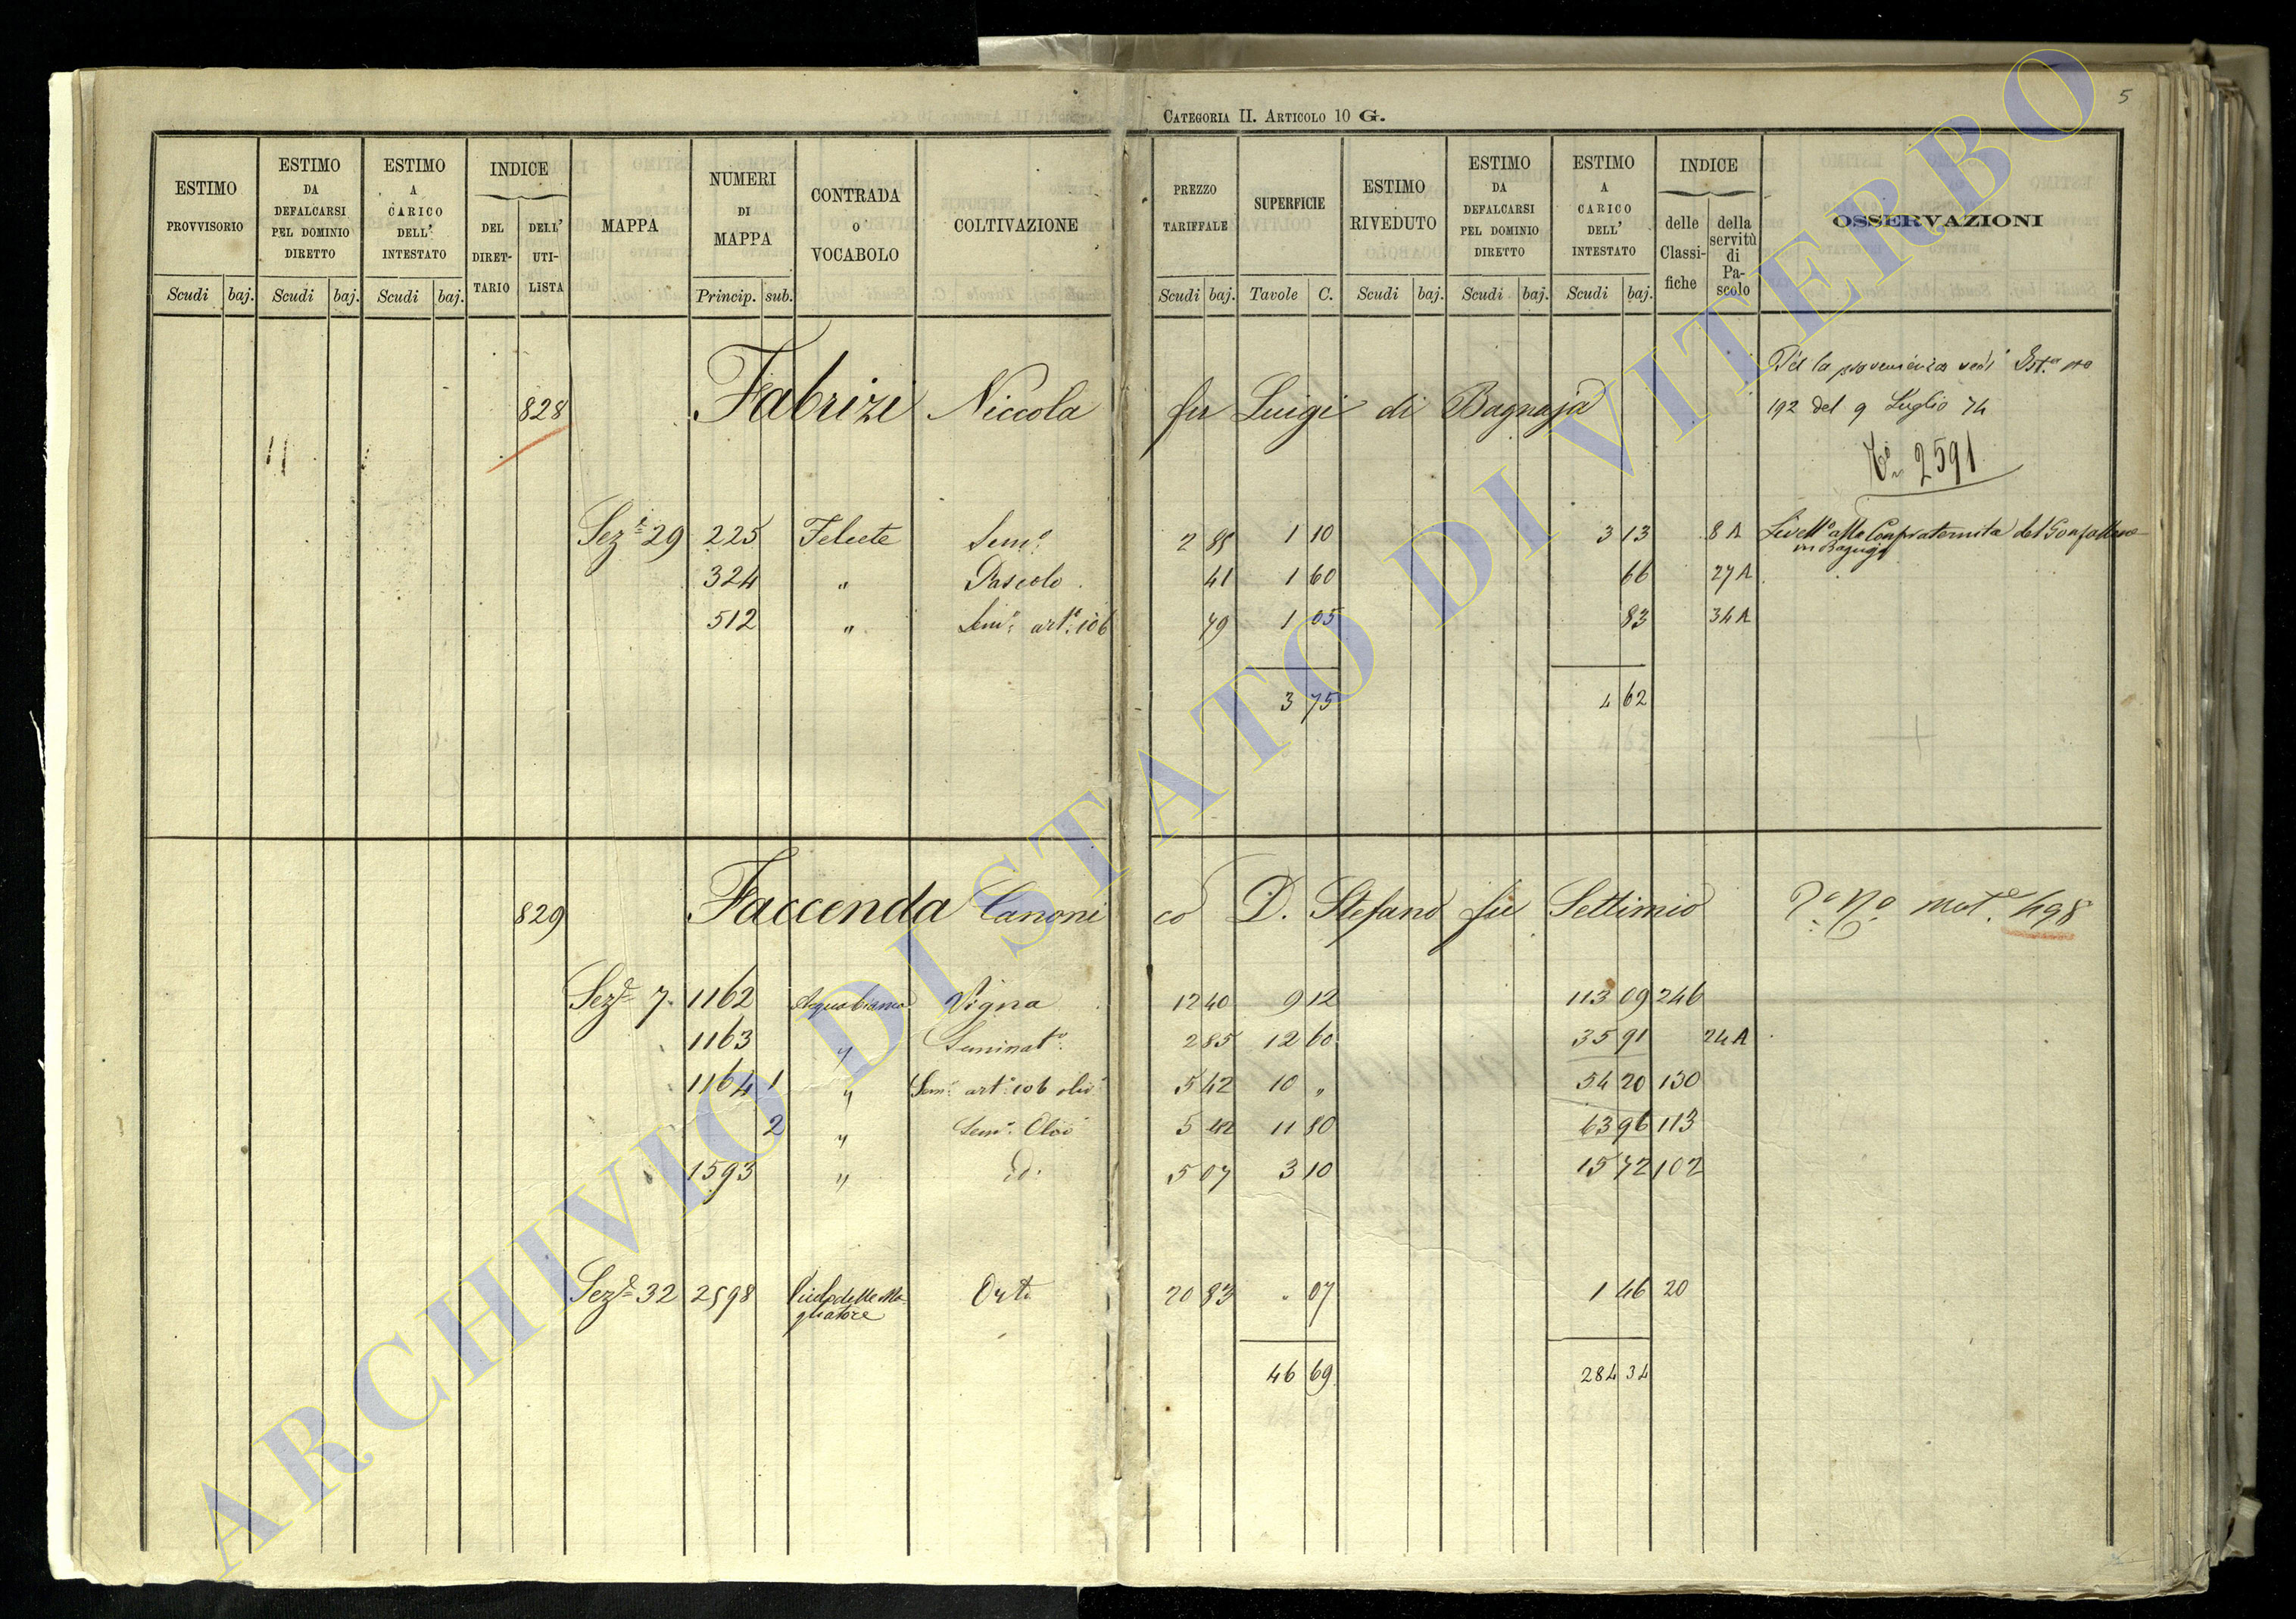 5
CATEGORIA II. ARTICOLO 10 G.
ESTIMO PROVVISORIO
ESTIMO DA DEFALCARSI PEL DOMINIO DIRETTO
ESTIMO A CARICO DELL' INTESTATO
INDICE
DEL DIRET-TARIO
DELL' UTI-LISTA
MAPPA
NUMERI DI MAPPA
CONTRADA o VOCABOLO
COLTIVAZIONE
PREZZO TARIFFALE
SUPERFICIE
ESTIMO RIVEDUTO
ESTIMO DA DEFALCARSI PEL DOMINIO DIRETTO
ESTIMO A CARICO DELL' INTESTATO
INDICE
delle Classi-fiche
della servitù di Pa-scolo
OSSERVAZIONI
Scudi baj. Scudi baj. Scudi baj. Princip. sub. Scudi baj. Tavole C. Scudi baj. Scudi baj. Scudi baj.
828 Fabrizi Niccola fu Luigi di Bagnaja
Pel la provenienza vedi Est.
192 del 9 Luglio 74
2591
Sez.e 29 225 Felcete Sem.o 2 85 1 10 3 13 8 A Livell.o alla Confraternita del Gonfalone
in Bagnaja
324 " Pascolo 41 1 60 66 27 A
512 " Sem.o art.o 106 79 1 05 83 34 A
3 75 4 62
829 Faccenda Canonico D. Stefano fu Settimio mat.e 498
Sez.e 7 1162 Acquabianca Vigna 12 40 9 12 113 09 246
1163 " Seminat.o 2 85 12 60 35 91 24 A
1164 1 " Sem.o art.o 106 oliv. 5 42 10 " 54 20 130
2 " Sem.o Oliv. 5 42 11 80 63 96 113
1593 " Id. 5 07 3 10 15 72 102
Sez.e 32 2598 delle Ma-
gliatore Orto 20 83 . 07 1 46 20
46 69 284 34
ARCHIVIO DI STATO DI VITERBO